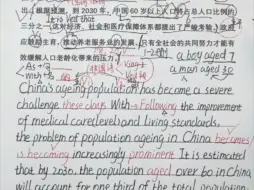 出，根据预测，到 2030 年，中国 60 岁以上人口将占总人口比例的
三分之一，这对经济、社会和医疗保障体系都提出了严峻考验。政府
应鼓励生育，推动养老服务业的发展，只有全社会的共同努力才能有
效缓解人口老龄化带来的压力。
a boy aged 7
a man aged 30
China's ageing population has become a severe
challenge these days With Following the improvement
of medical care (level) and living standards,
the problem of population ageing in China becomes
is becoming increasingly prominent It is estimated
that by 2030, the population aged over 60 in China
will account for one third of the total population